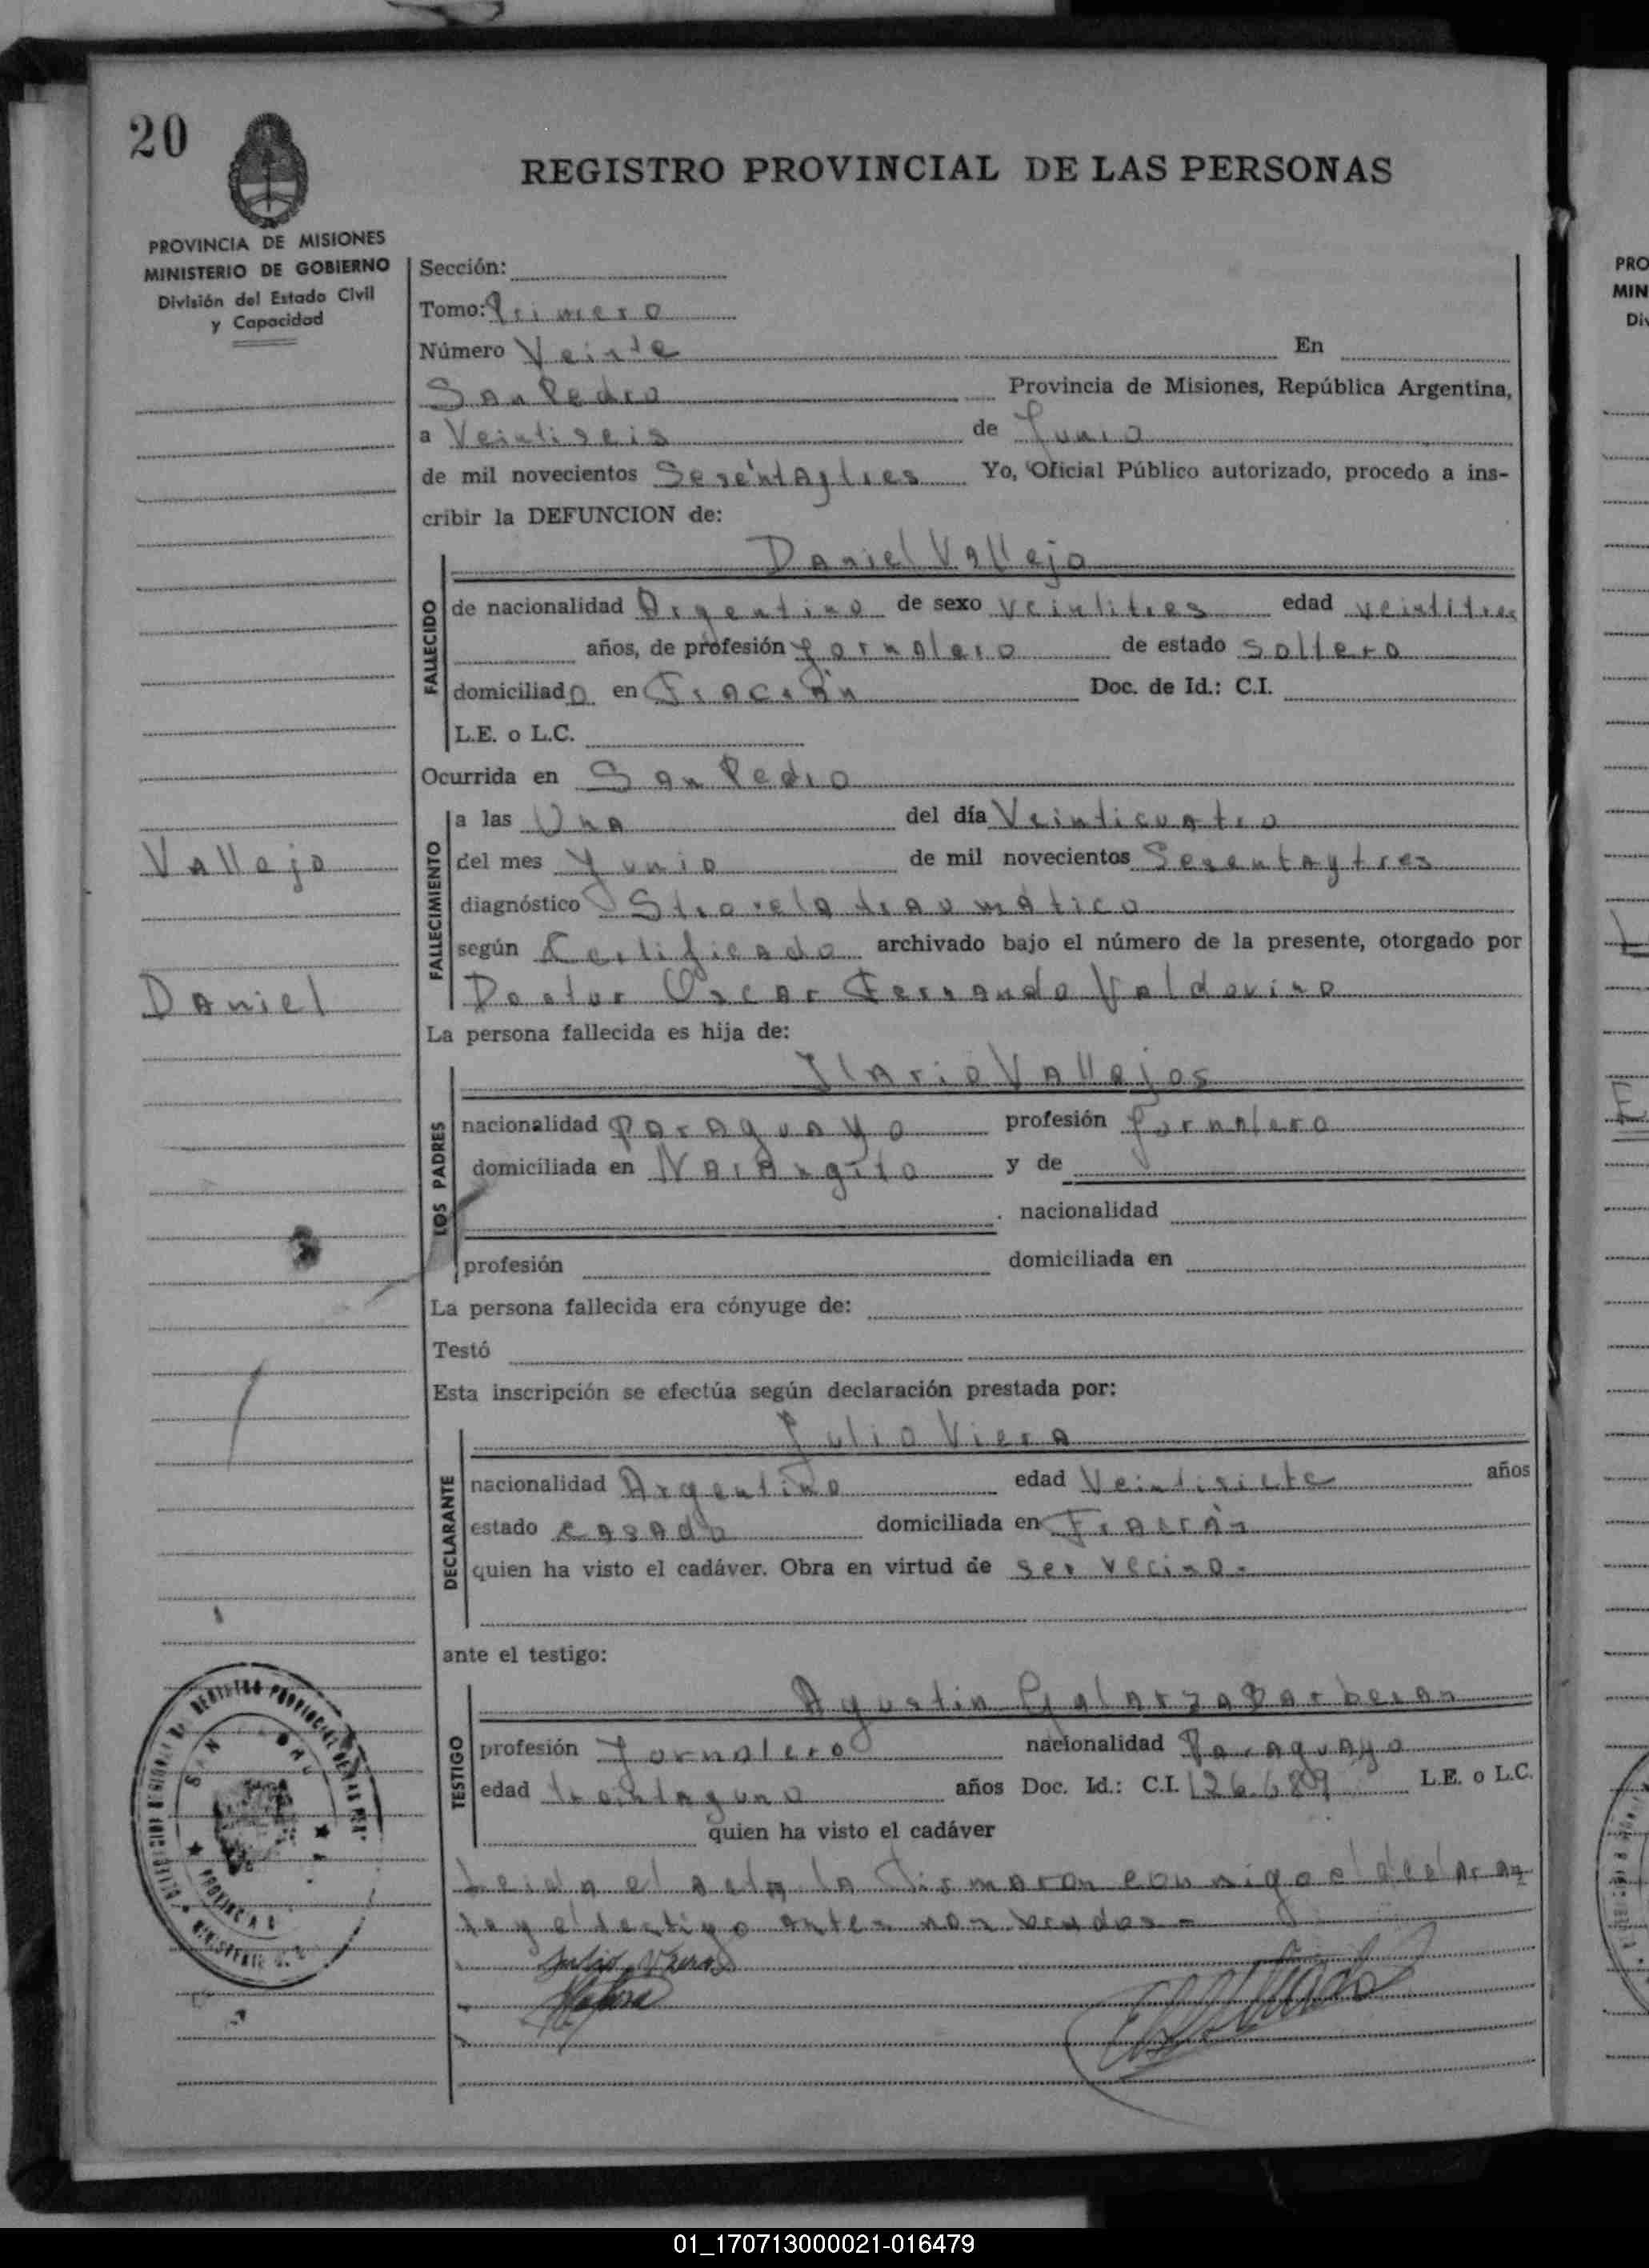 20
REGISTRO PROVINCIAL DE LAS PERSONAS
PROVINCIA DE MISIONES
MINISTERIO DE GOBIERNO
División del Estado Civil
y Capacidad
Sección:
Tomo: Primero
Número Veinte En
San Pedro Provincia de Misiones, República Argentina,
a Veintiseis de Junio
de mil novecientos Sesentaytres Yo, Oficial Público autorizado, procedo a ins-
cribir la DEFUNCION de:
Daniel Vallejo
FALLECIDO
de nacionalidad Argentino de sexo veintitres edad veintitres
años, de profesión Jornalero de estado soltero
domiciliado en Fracrán Doc. de Id.: C.I.
L.E. o L.C.
Ocurrida en San Pedro
FALLECIMIENTO
a las Una del día Veinticuatro
del mes Junio de mil novecientos Sesentaytres
diagnóstico traumático
según Certificado archivado bajo el número de la presente, otorgado por
Doctor Oscar Fernando Valdovino
Vallejo
Daniel
La persona fallecida es hija de:
Ilario Vallejos
LOS PADRES
nacionalidad Paraguayo profesión Jornalero
domiciliada en Narangito y de
nacionalidad
profesión domiciliada en
La persona fallecida era cónyuge de:
Testó
Esta inscripción se efectúa según declaración prestada por:
Julio Viera
DECLARANTE
nacionalidad Argentino edad Veintisiete años
estado casado domiciliada en Fracrán
quien ha visto el cadáver. Obra en virtud de ser vecino-
ante el testigo:
Agustin Galarza Barberan
TESTIGO
profesión Jornalero nacionalidad Paraguayo
edad treintayuno años Doc. Id.: C.I. 126.689 L.E. o L.C.
quien ha visto el cadáver
Leida el acta la firmaron conmigo el declaran
te y el testigo antes nombrados-
Julio Viera
REGISTRO PROVINCIAL DE LAS
SAN
PROVINCIA
PRO
MIN
Div
01_170713000021-016479